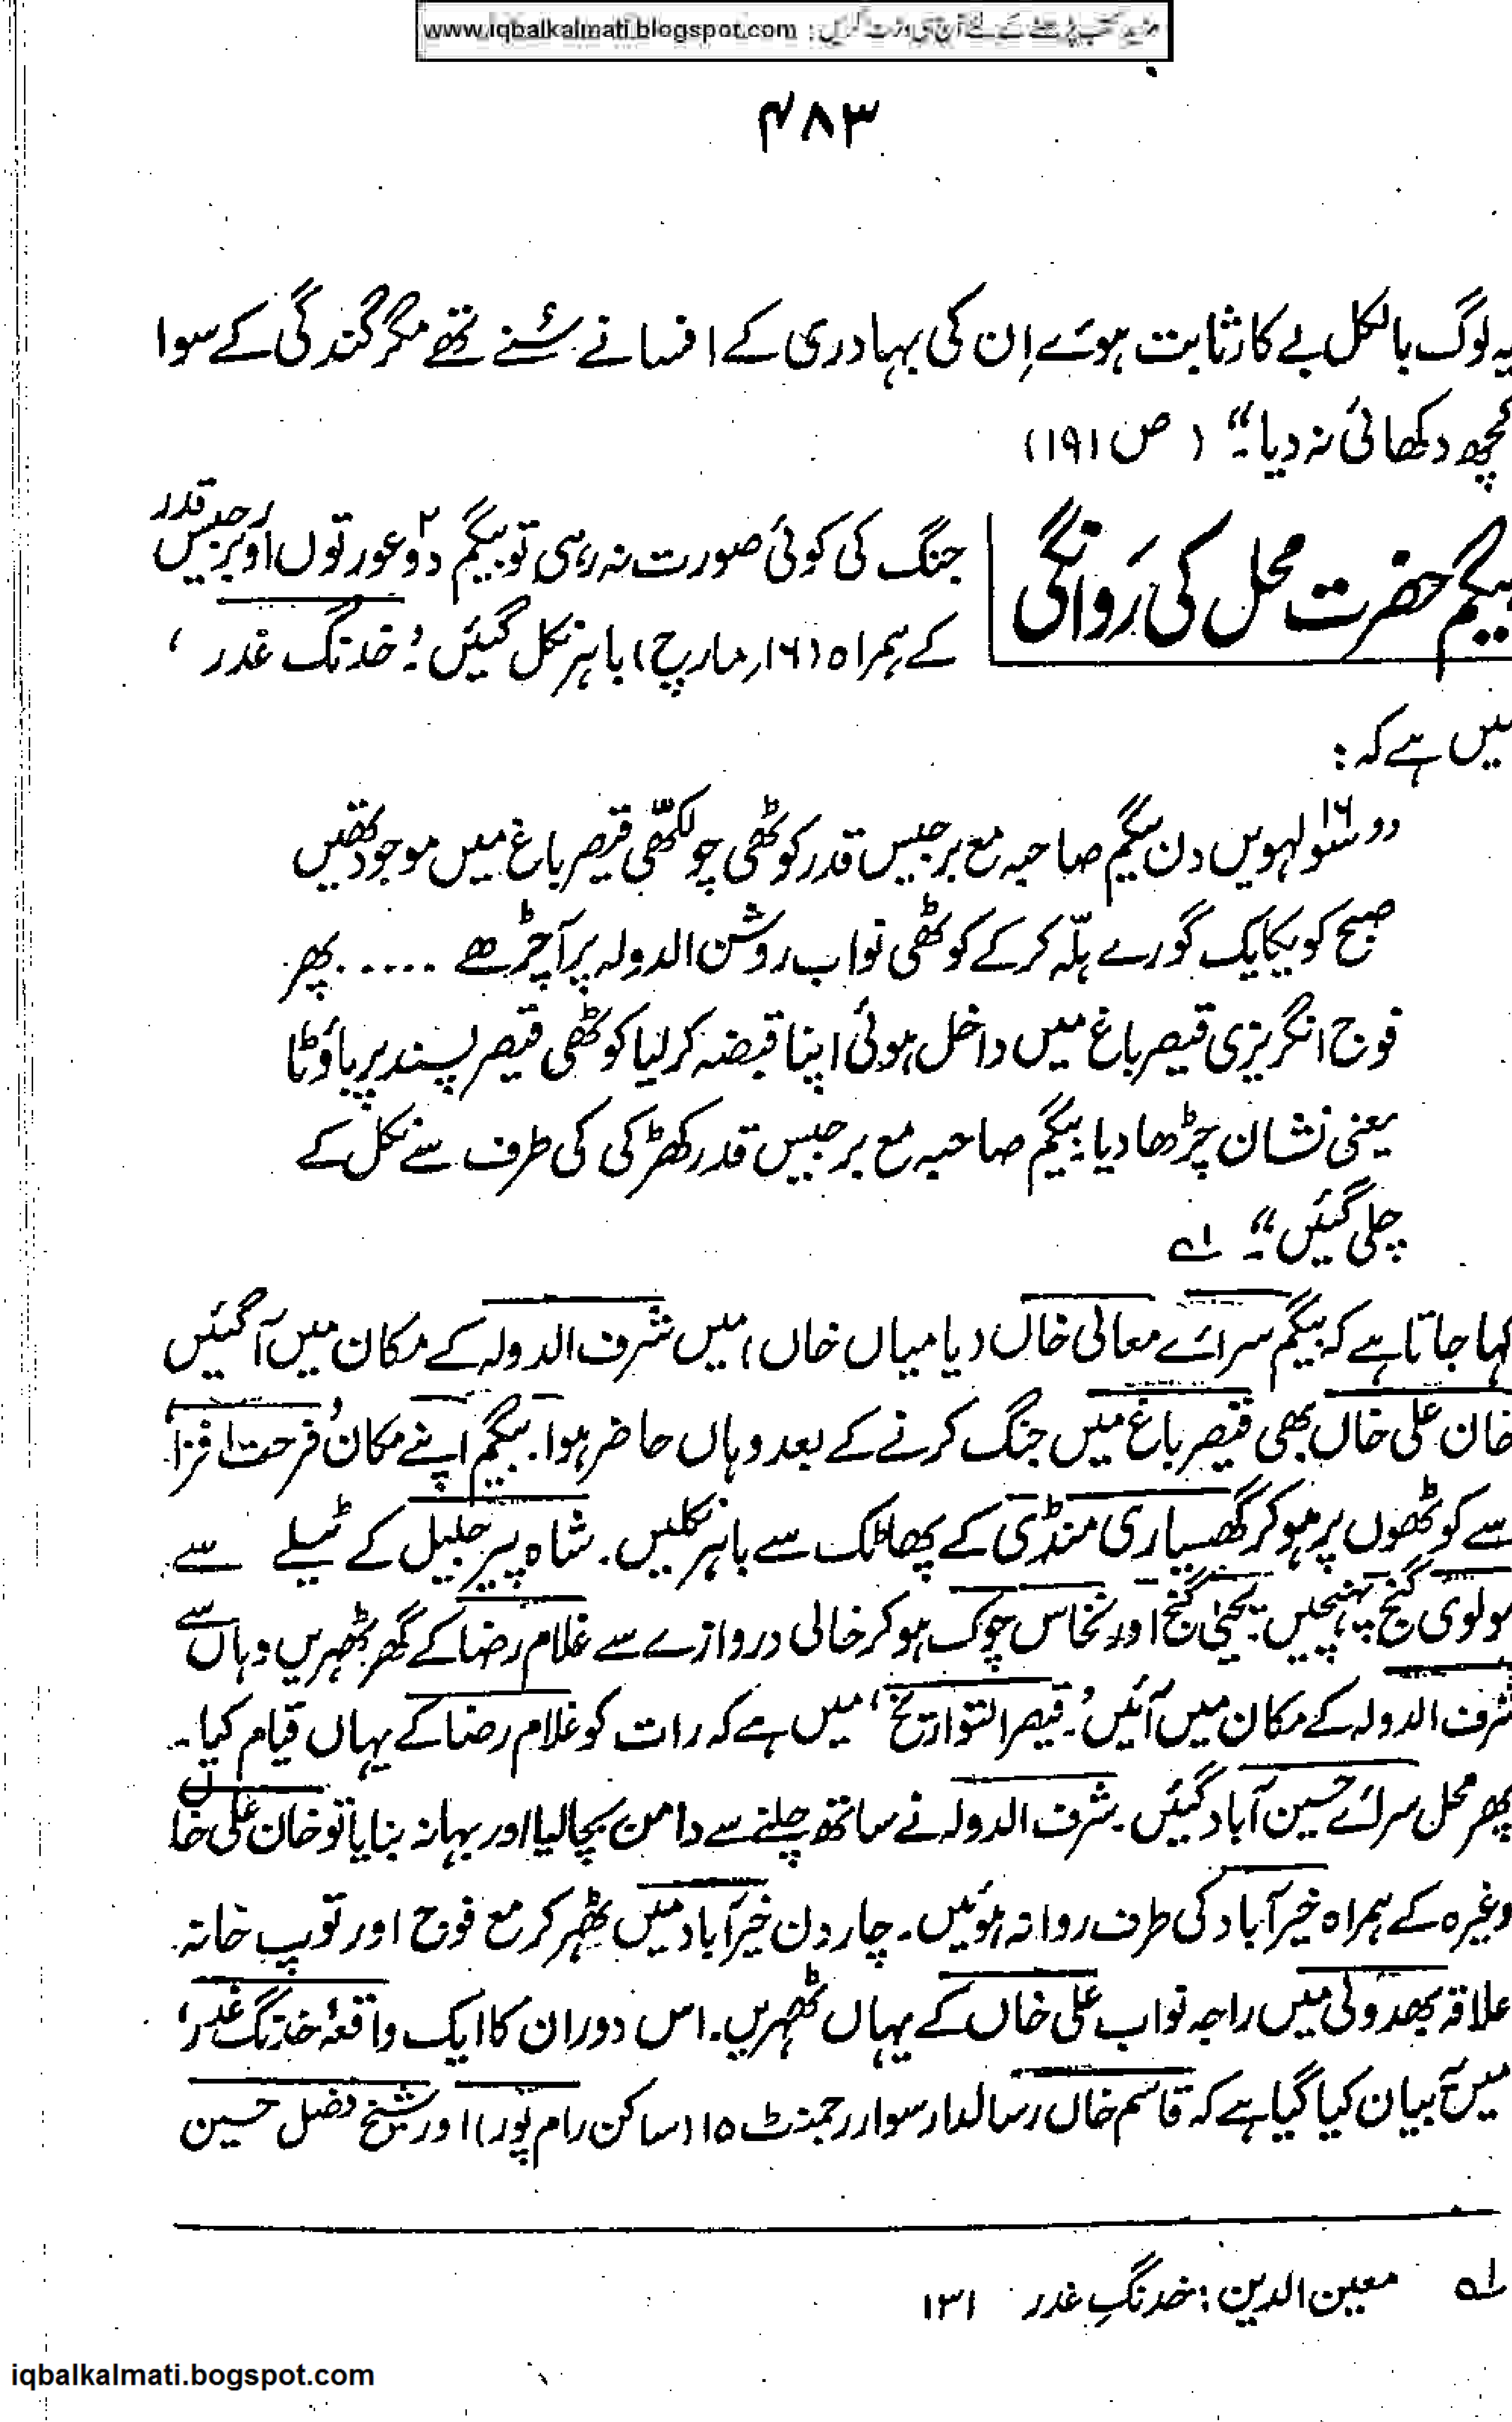 مزید کتب پڑھنے کے لئے آج ہی وزٹ کریں : www.iqbalkalmati.blogspot.com
۴۸۳
یہ لوگ بالکل بے کار ثابت ہوئے اِن کی بہادری کے افسانے سُنے تھے مگر گندگی کے سوا
کچھ دکھائی نہ دیا۔“ (ص ۱۹۱)
بیگم حضرت محل کی رَوانگی
جنگ کی کوئی صورت نہ رہی تو بیگم دو۲ عورتوں اور برجیس قدر
کے ہمراہ (۱۶ر مارچ) باہر نکل گئیں۔ ’خدنگ غدر‘
میں ہے کہ:
”سولہویں۱۶ دن بیگم صاحبہ مع برجیس قدر کوٹھی چولکھّی قیصر باغ میں موجود تھیں
صبح کو یکایک گورے ہلّہ کر کے کوٹھی نواب روشن الدولہ پر آچڑھے ..... پھر
فوج انگریزی قیصر باغ میں داخل ہوئی اپنا قبضہ کر لیا کوٹھی قیصر پسند پر پاؤٹا
یعنی نشان چڑھا دیا۔ بیگم صاحبہ مع برجیس قدر کھڑکی کی طرف سے نکل کے
چلی گئیں“۔ ۱ے
کہا جاتا ہے کہ بیگم سرائے معالی خاں (یا میاں خاں) میں شرف الدولہ کے مکان میں آگئیں
خان علی خاں بھی قیصر باغ میں جنگ کرنے کے بعد وہاں حاضر ہوا۔ بیگم اپنے مکان ’فرحت افزا‘
سے کوٹھوں پر ہو کر گھسیاری منڈی کے پھاٹک سے باہر نکلیں۔ شاہ پیر جلیل کے ٹیلے سے
مولوی گنج پہنچیں یحییٰ گنج اور نخاس چوک ہو کر خالی دروازے سے غلام رضا کے گھر ٹھہریں وہاں سے
شرف الدولہ کے مکان میں آئیں۔ ’قیصر التواریخ‘ میں ہے کہ رات کو غلام رضا کے یہاں قیام کیا۔
پھر محل سرائے حسین آباد گئیں۔ شرف الدولہ نے ساتھ چلنے سے دامن بچا لیا اور بہانہ بنایا تو خان علی خاں
وغیرہ کے ہمراہ خیرآباد کی طرف روانہ ہوئیں۔ چار دن خیرآباد میں ٹھہر کر مع فوج اور توپ خانہ
علاقہ بھدولی میں راجہ نواب علی خاں کے یہاں ٹھہریں۔ اس دوران کا ایک واقعہ ’خدنگ غدر‘
میں بیان کیا گیا ہے کہ قاسم خاں رسالدار سوار رجمنٹ ۱۵ (ساکن رام پور) اور شیخ فضل حسین
۱ے معین الدین : خدنگِ غدر ۱۳۱
iqbalkalmati.bogspot.com